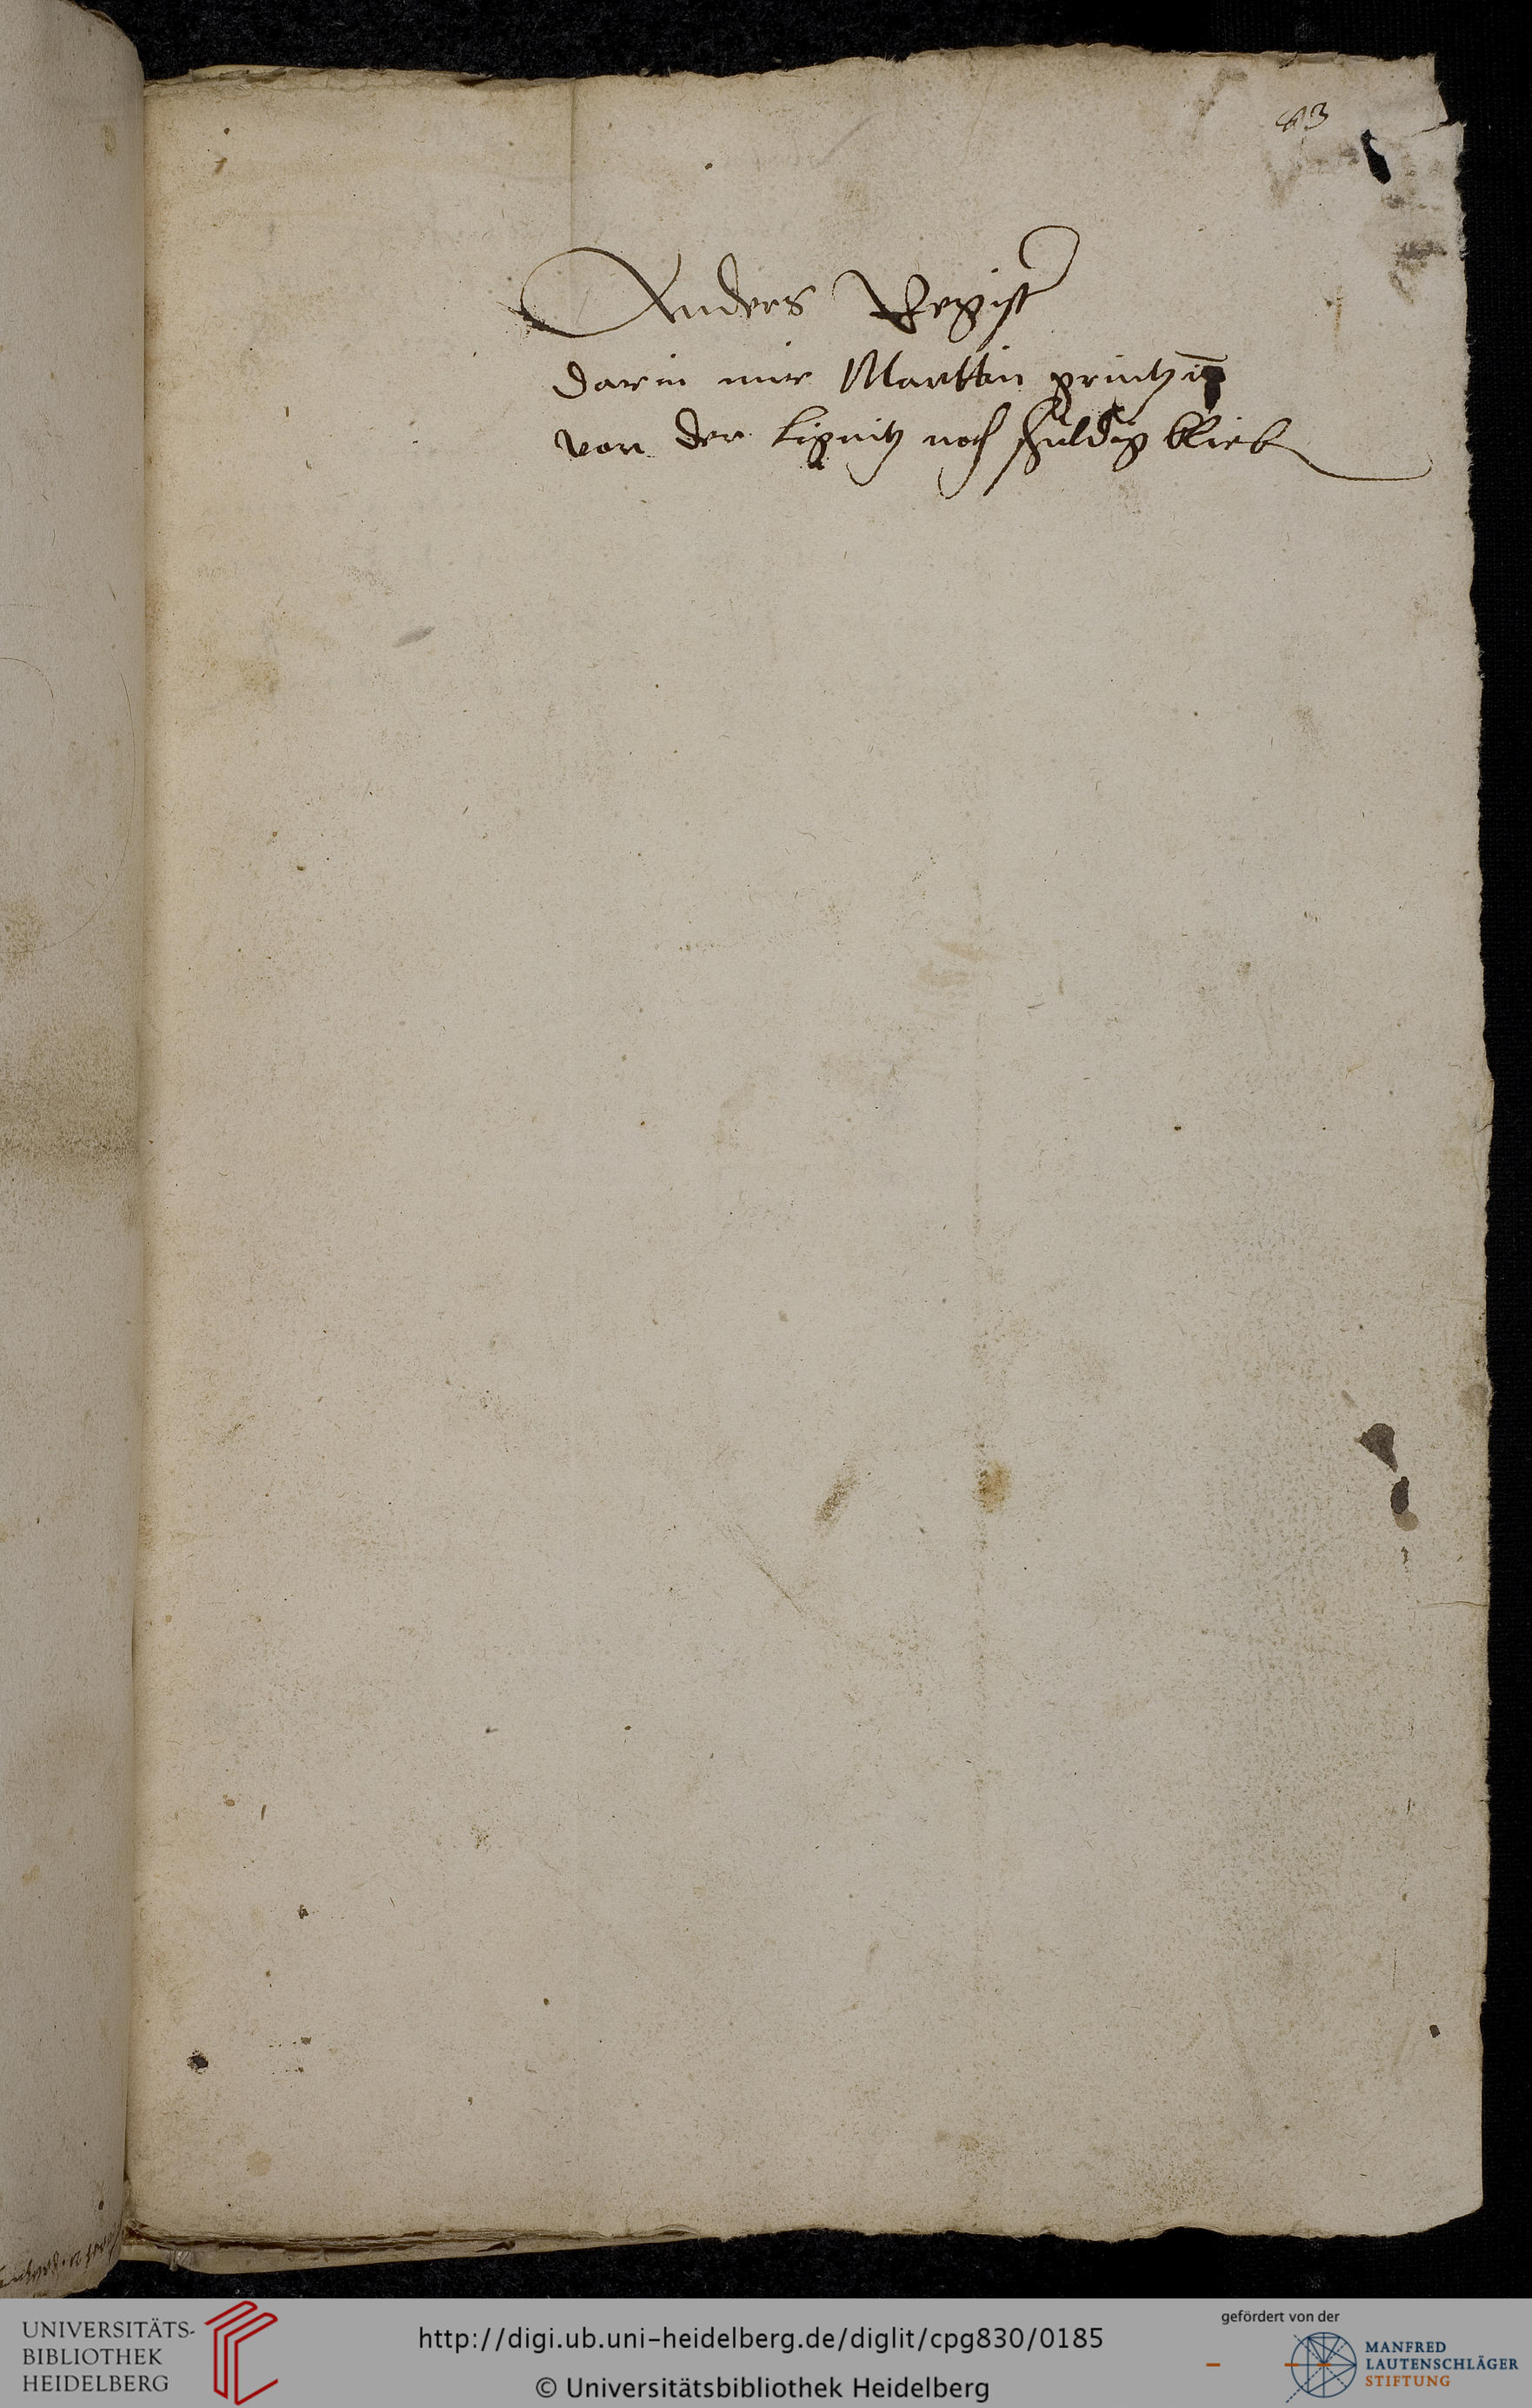 83
Anders Regist
darin mir Marttin printz
von der lignitz noch schuldig blieb
UNIVERSITÄTS-
BIBLIOTHEK
HEIDELBERG
http://digi.ub.uni-heidelberg.de/diglit/cpg830/0185
© Universitätsbibliothek Heidelberg
gefördert von der
MANFRED
LAUTENSCHLÄGER
STIFTUNG